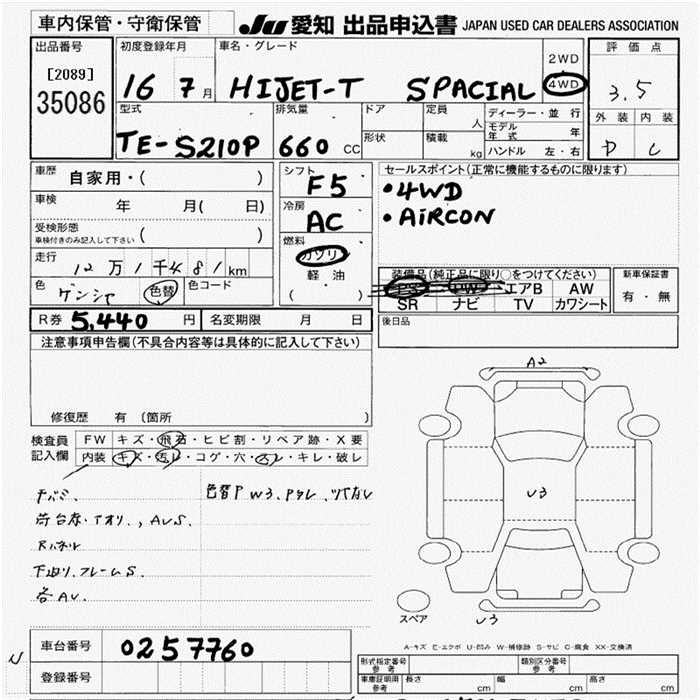 車内保管・守衛保管
JU 愛知 出品申込書 JAPAN USED CAR DEALERS ASSOCIATION
出品番号 初度登録年月 車名・グレード 2WD 評価点
[2089] 16 7月 HIJET-T SPACIAL 4WD 3.5
35086
型式 排気量 ドア 定員 人 ディーラー・並行 外装 内装
TE-S210P 660 CC 形状 積載 kg モデル年式 年 D C
ハンドル 左・右
車歴 自家用・( ) シフト F5 セールスポイント(正常に機能するものに限ります)
車検 年 月( 日) 冷房 AC •4WD
受検形態 ( ) •AiRCON
車検付きのみ記入して下さい
燃料 ガソリ
走行 12万1千481km 軽油 装備品(純正品に限り○をつけてください) 新車保証書
色 ゲンシャ 色替 色コード ( ) PS PW エアB AW 有・無
SR ナビ TV カワシート
R券 5,440 円 名変期限 月 日 後日品
注意事項申告欄(不具合内容等は具体的に記入して下さい)
修復歴 有(箇所 )
A2
検査員 FW キズ・飛石・ヒビ割・リペア跡・X要
記入欄 内装 キズ・汚レ・コゲ・穴・スレ・キレ・破レ
色替P W3.
U3
Rパネル
下廻り.フレームS.
各AU.
スペア
U3
A-キズ E-エクボ U-凹み W-補修跡 S-サビ C-腐食 XX-交換済
車台番号 0257760
登録番号
形式指定番号 参考 類別区分番号 参考
車庫証明用 参考 長さ cm 幅 cm 高さ cm